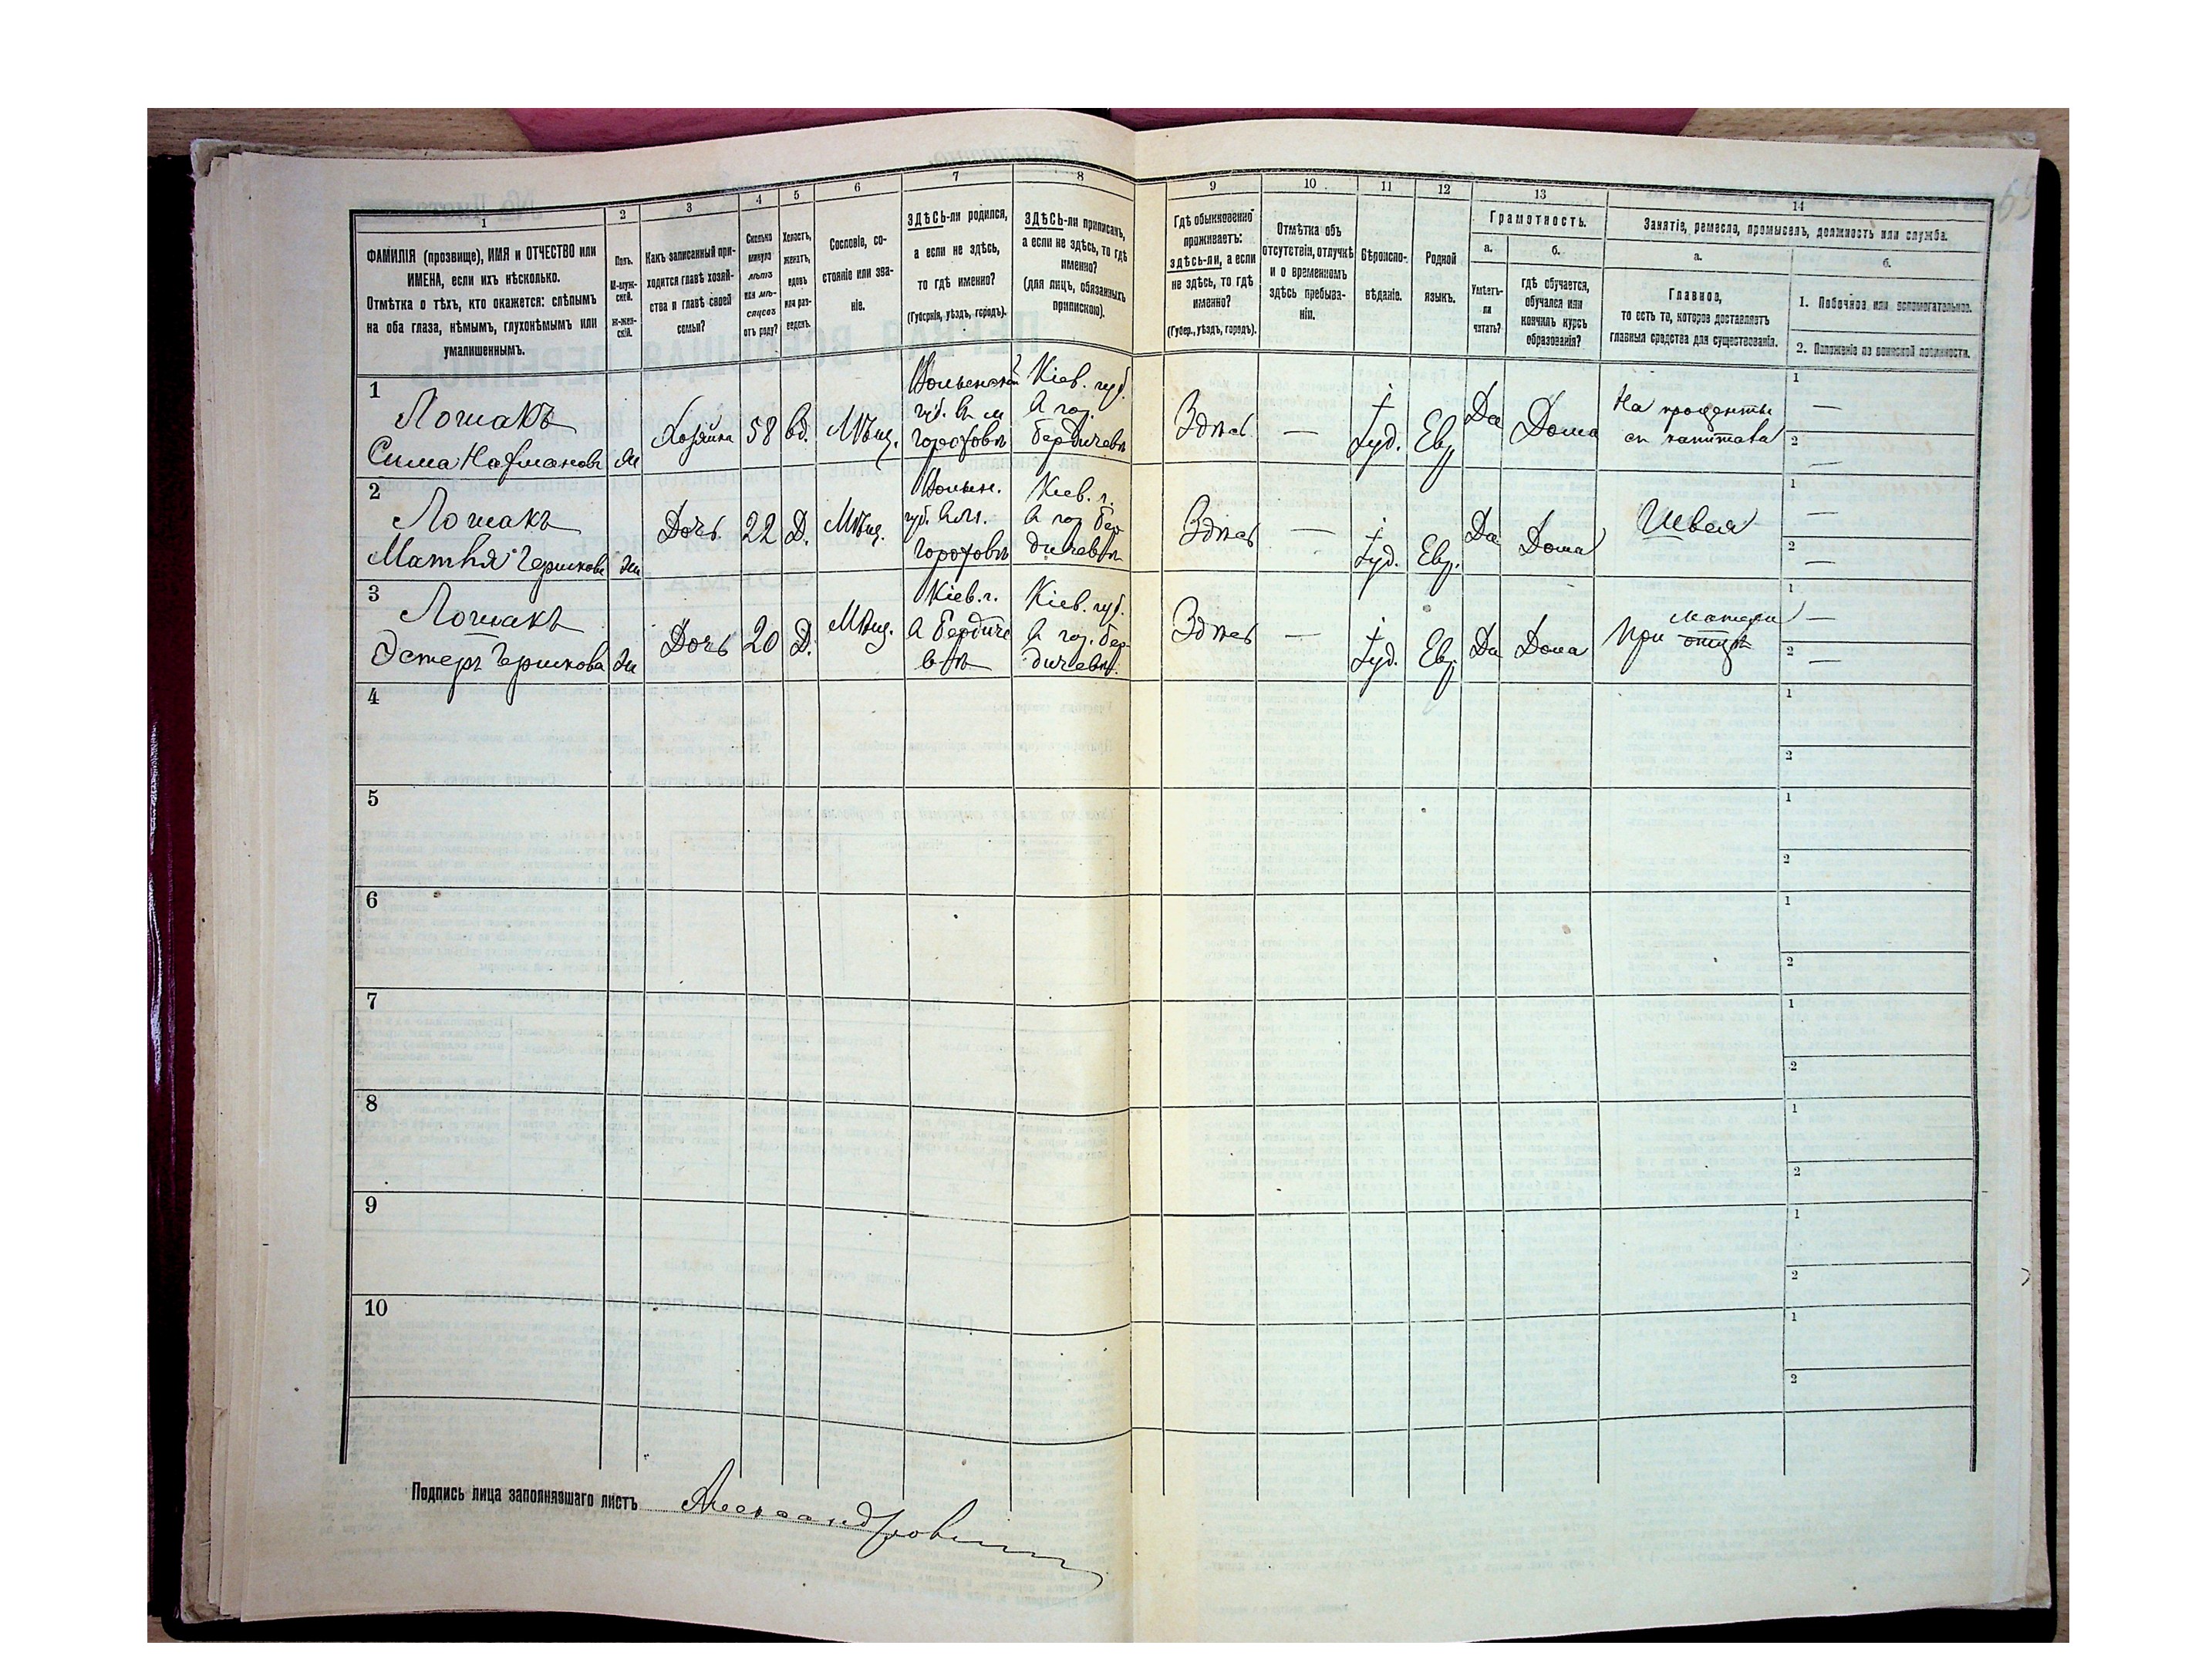 1
2
3
4
5
6
7
8
9
10
11
12
13
14
ФАМИЛІЯ (прозвище), ИМЯ и ОТЧЕСТВО или
ИМЕНА, если ихъ нѣсколько.
Отмѣтка о тѣхъ, кто окажется: слѣпымъ
на оба глаза, нѣмымъ, глухонѣмымъ или
умалишеннымъ.
Полъ.
М-муж-
ской.
Ж-жен-
скій.
Какъ записанный при-
ходится главѣ хозяй-
ства и главѣ своей
семьи?
Сколько
минуло
лѣтъ
или мѣ-
сяцевъ
отъ роду?
Холостъ,
женатъ,
вдовъ
или раз-
веденъ.
Сословіе, со-
стояніе или зва-
ніе.
ЗДѢСЬ-ли родился,
а если не здѣсь,
то гдѣ именно?
(Губернія, уѣздъ, городъ).
ЗДѢСЬ-ли приписанъ,
а если не здѣсь, то гдѣ
именно?
(для лицъ, обязанныхъ
припискою).
Гдѣ обыкновенно
проживаетъ:
здѣсь-ли, а если
не здѣсь, то гдѣ
именно?
(Губер., уѣздъ, городъ).
Отмѣтка объ
отсутствіи, отлучкѣ
и о временномъ
здѣсь пребыва-
ніи.
Вѣроиспо-
вѣданіе.
Родной
языкъ.
Грамотность.
а.
б.
Умѣетъ-
ли
читать?
гдѣ обучается,
обучался или
кончилъ курсъ
образованія?
Занятіе, ремесло, промыселъ, должность или служба.
а.
б.
Главное,
то есть то, которое доставляетъ
главныя средства для существованія.
1. Побочное или вспомогательное.
2. Положеніе по воинской повинности.
1
Лошакъ
Сима Нафманова
Хозяйка
58
вд.
Мѣщ.
Волынской
губ. въ м
Гороховѣ
Кіев. губ.
въ гор.
Бердичевѣ
Здѣсь
—
Іуд.
Евр.
Да
Дома
На проценты
съ капитала
1 —
2 —
2
Лошакъ
Гершкова
Дочь
22
Д.
Мѣщ.
Волын.
губ. въ м.
Гороховѣ
Кіев. г.
въ гор Бер
дичевѣ
Здѣсь
—
Іуд.
Евр.
Да
Дома
Швея
1 —
2 —
3
Лошакъ
Эстеръ Гершкова
Дочь
20
Д.
Мѣщ.
Кіев. г.
въ Бердиче
вѣ
Кіев. губ.
въ гор. Бер
дичевѣ
Здѣсь
—
Іуд.
Евр
Да
Дома
матери
При отцѣ
1 —
2 —
4
1
2
5
1
2
6
1
2
7
1
2
8
1
2
9
1
2
10
1
2
Подпись лица заполнявшаго листъ